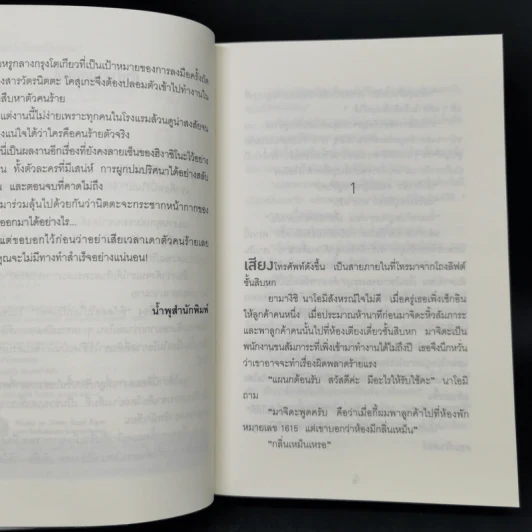 หรูกลางกรุงโตเกียวที่เป็นเป้าหมายของการลงมือครั้งถัด
สารวัตรนิตตะ โคสุเกะจึงต้องปลอมตัวเข้าไปทำงานใน
สืบหาตัวคนร้าย
แต่งานนี้ไม่ง่ายเพราะทุกคนในโรงแรมล้วนดูน่าสงสัยจน
แน่ใจได้ว่าใครคือคนร้ายตัวจริง
นี้เป็นผลงานอีกเรื่องที่ยังคงลายเซ็นของฮิงาชิโนะไว้อย่าง
น ทั้งตัวละครที่มีเสน่ห์ การผูกปมปริศนาได้อย่างสลับ
น และตอนจบที่คาดไม่ถึง
มาร่วมลุ้นไปด้วยกันว่านิตตะจะกระชากหน้ากากของ
ออกมาได้อย่างไร...
แต่ขอบอกไว้ก่อนว่าอย่าเสียเวลาเดาตัวคนร้ายเลย
คุณจะไม่มีทางทำสำเร็จอย่างแน่นอน!
น้ำพุสำนักพิมพ์
1
เสียงโทรศัพท์ดังขึ้น เป็นสายภายในที่โทรมาจากโถงลิฟต์
ชั้นสิบหก
ยามางิชิ นาโอมิสังหรณ์ใจไม่ดี เมื่อครู่เธอเพิ่งเช็กอิน
ให้ลูกค้าคนหนึ่ง เมื่อประมาณห้านาทีก่อนมาจิดะหิ้วสัมภาระ
และพาลูกค้าคนนั้นไปที่ห้องเตียงเดี่ยวชั้นสิบหก มาจิดะเป็น
พนักงานขนสัมภาระที่เพิ่งเข้ามาทำงานได้ไม่ถึงปี เธอจึงนึกหวั่น
ว่าเขาอาจจะทำเรื่องผิดพลาดร้ายแรง
“แผนกต้อนรับ สวัสดีค่ะ มีอะไรให้รับใช้คะ” นาโอมิ
ถาม
“มาจิดะพูดครับ คือว่าเมื่อกี้ผมพาลูกค้าไปที่ห้องพัก
หมายเลข 1615 แต่เขาบอกว่าห้องมีกลิ่นเหม็น”
“กลิ่นเหม็นเหรอ”